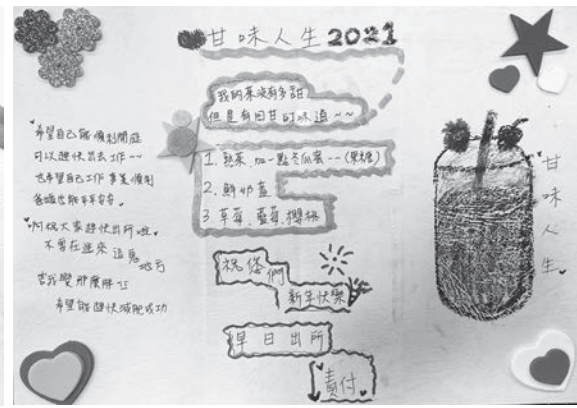 甘味人生2021
我的茶沒有多甜
但是有回甘的味道~~
1. 熟茶、加一點冬瓜蜜--(果糖)
2. 鮮奶蓋
3. 草莓、藍莓、櫻桃
祝您們
新年快樂
早日出所
責付
希望自己能順利開庭
可以趕快出去工作~~
也希望自己工作事業順利
爸媽也能平平安安。
啊祝大家趕快出所啦。
不要在進來這鬼地方
害我變那麼胖
希望能趕快減肥成功
甘味人生